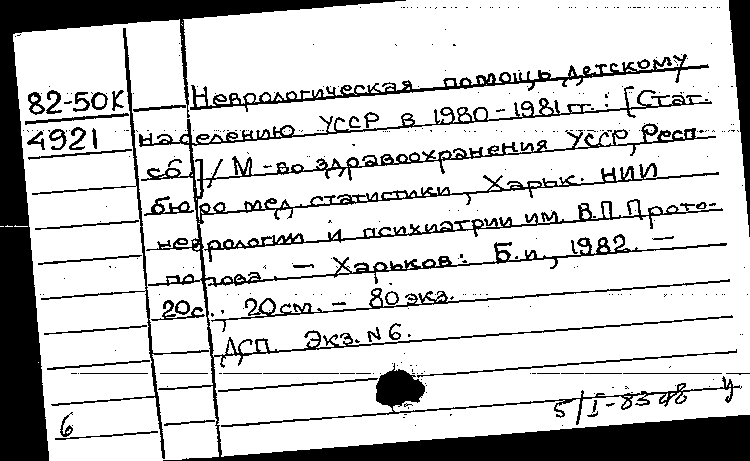 82-50К
4921
Неврологическая помощь детскому
населению УССР в 1980-1981 гг.: [Стат.
сб.] / М-во здравоохранения УССР, Респ.
бюро мед. статистики, Харьк. НИИ
неврологии и психиатрии им. В.П. Прото-
попова. — Харьков: Б.и., 1982. —
20с.; 20см. — 80 экз.
ДСП. Экз. N 6.
6
5/I-83